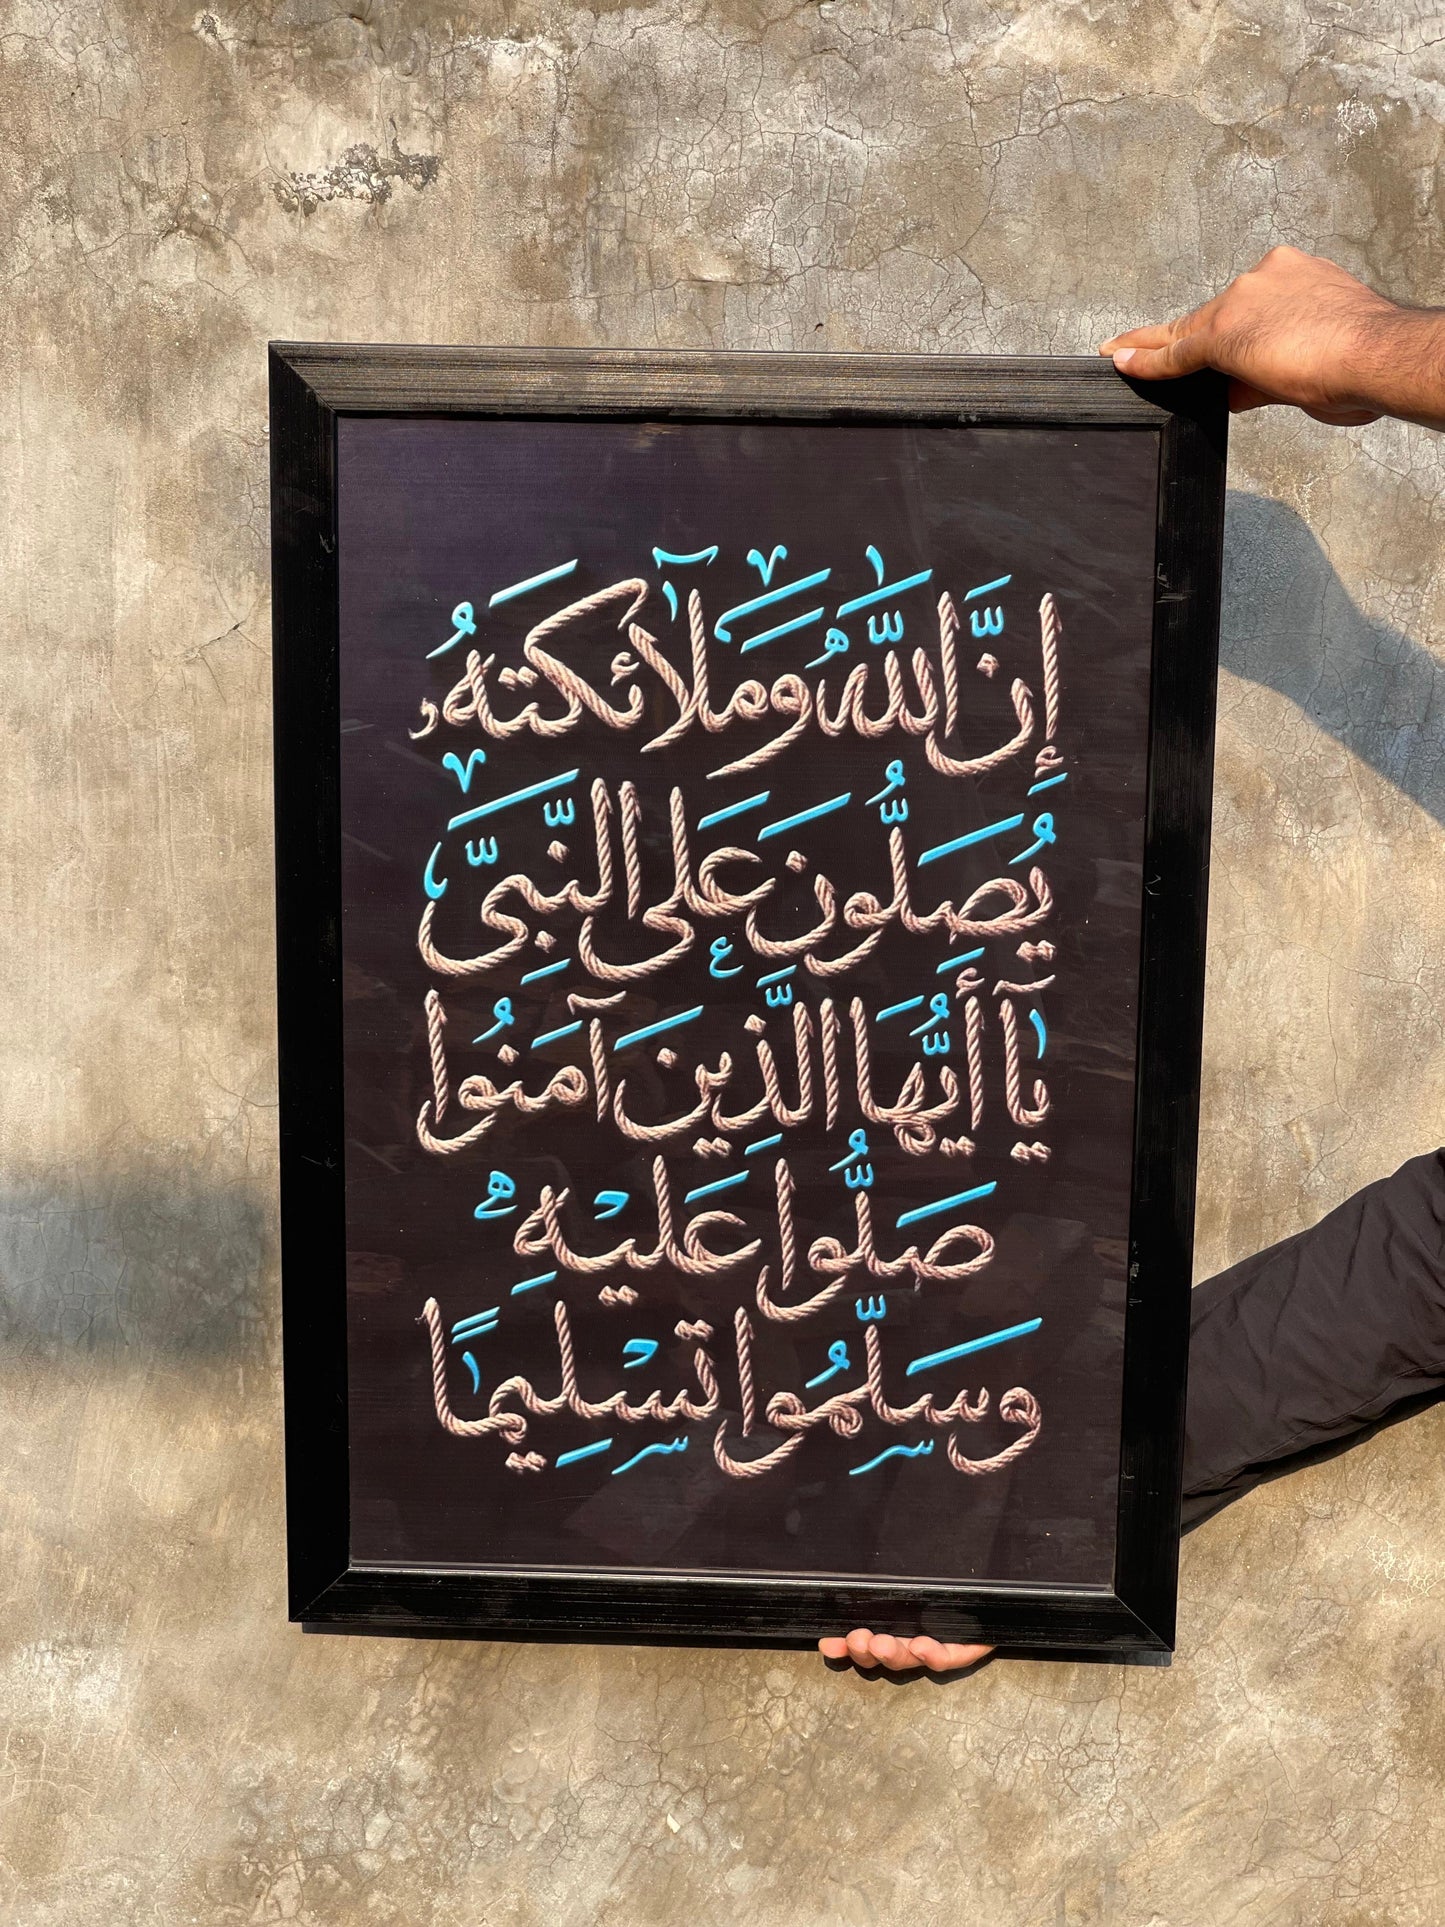 إِنَّ اللَّهَ وَمَلَآئِكَتَهُ
يُصَلُّونَ عَلَى النَّبِيِّ
يَآ أَيُّهَا الَّذِينَ آمَنُوا
صَلُّوا عَلَيْهِ
وَسَلِّمُوا تَسْلِيمًا